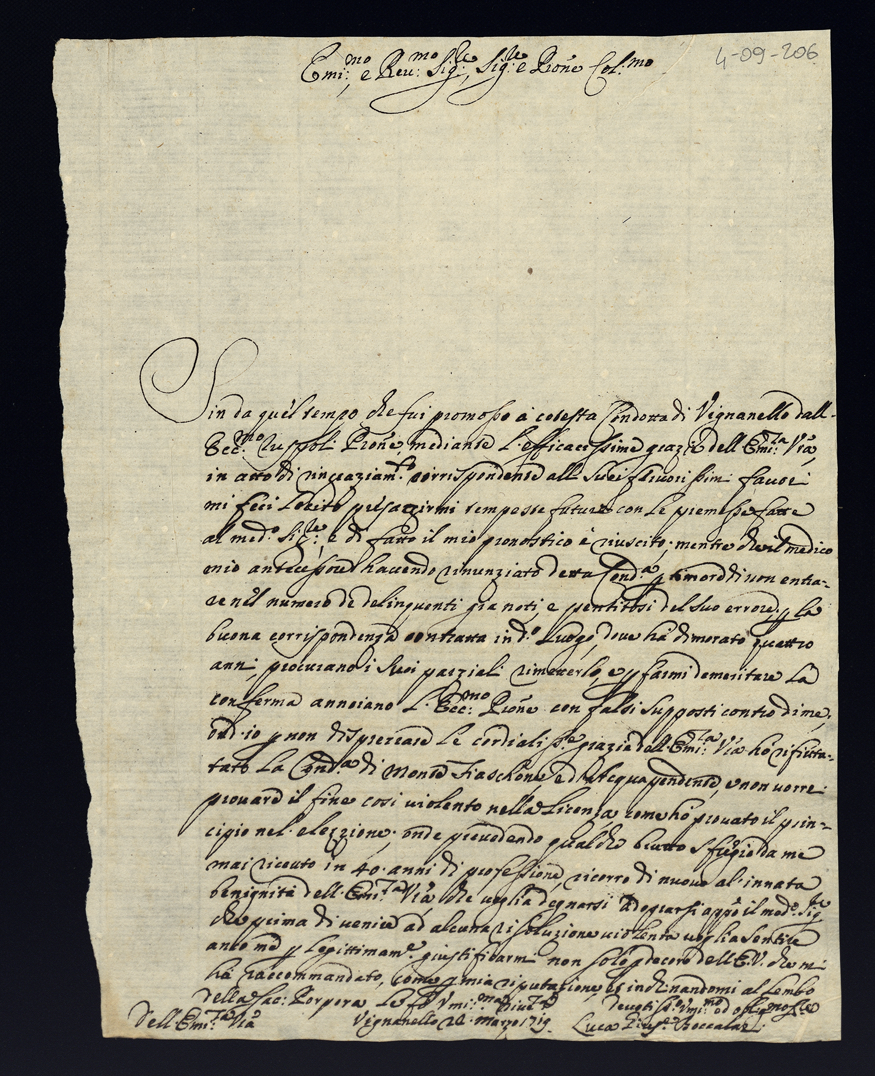 4-09-206
Emi:mo e Reu:mo Sig:re, Sig:re e Prone Col:mo
Sin da quel tempo che fui promosso à cotesta Condotta di Vignanello dall-
Ecc:mo Prone, mediante l'efficacissime grazie dell'Emi:za Vrã,
in atto di ringraziam:to corrispondente all suoi favori
mi feci lecito tempeste future con le premesse fatte
al med:o Sig:re, e di fatto il mio pronostico è riuscito, mentre che il medico
mio antecessore havendo rinunziato detta Cond:a p timor di non entra-
re nel numero de delinquenti già noti, e pentitosi del suo errore, p la
buona corrispondenza contratta in d:o luogo, dove hà dimorato quattro
anni, procurano i suoi parziali rimetterlo, e p farmi demeritare la
conferma annoiano l'Ecc:mo Prone con falsi supposti contro di me,
ond'io p non disprezzare le cordialiss:e grazie dell'Emi:za Vrã hò rifiuta-
tato la Cond:a di Monte Fiascone ed Acquapendente, e non vorrei
provare il fine così violento nella licenza, come hò provato il prin-
cipio nel'elezzione, onde prevedendo qualche brutto sfregio da me
mai riceuto in 40 anni di professione, ricorro di nuovo al'innata
benignità dell'Emi:za Vrã, che voglia degnarsi appo il med:o Sig:re
che prima di venire ad alcuna risoluzione violenta voglia sentire
anco me p legittimam:e giustificarmi non solo p decoro dell'E.V. che mi
hà raccommandato, come p mia riputazione, ed inchinandomi al lembo
della Sac: Porpora le fò Vmi:ma River:za
Dell'Emi:za Vrã
Vignanello 22 Marzo 1719
devotiss:o Vmi:mo ed oblig:mo Ser:re
Luca Gius:e Boccalari